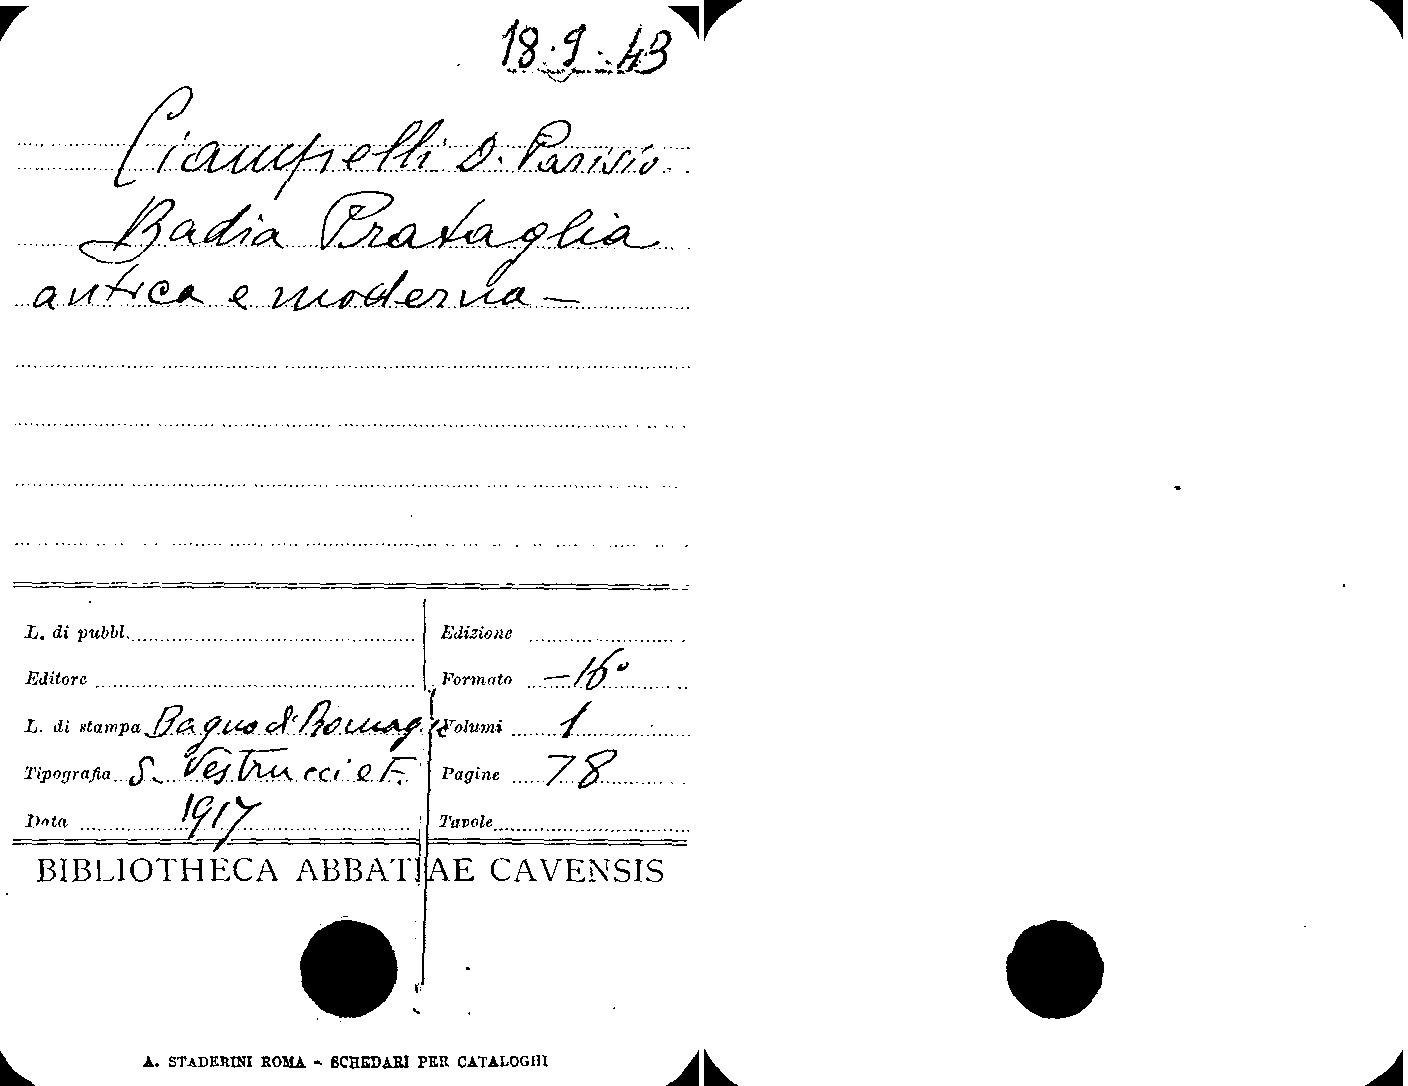 18.9.43
Ciampelli D. Parisio
Badia Prataglia
antica e moderna —
L. di pubbl.
Edizione
Editore
Formato — 16°
L. di stampa Bagno di Romagna
Volumi 1
Tipografia S. Vestrucci e F.
Pagine 78
Data 1917
Tavole
BIBLIOTHECA ABBATIAE CAVENSIS
A. STADERINI ROMA - SCHEDARI PER CATALOGHI